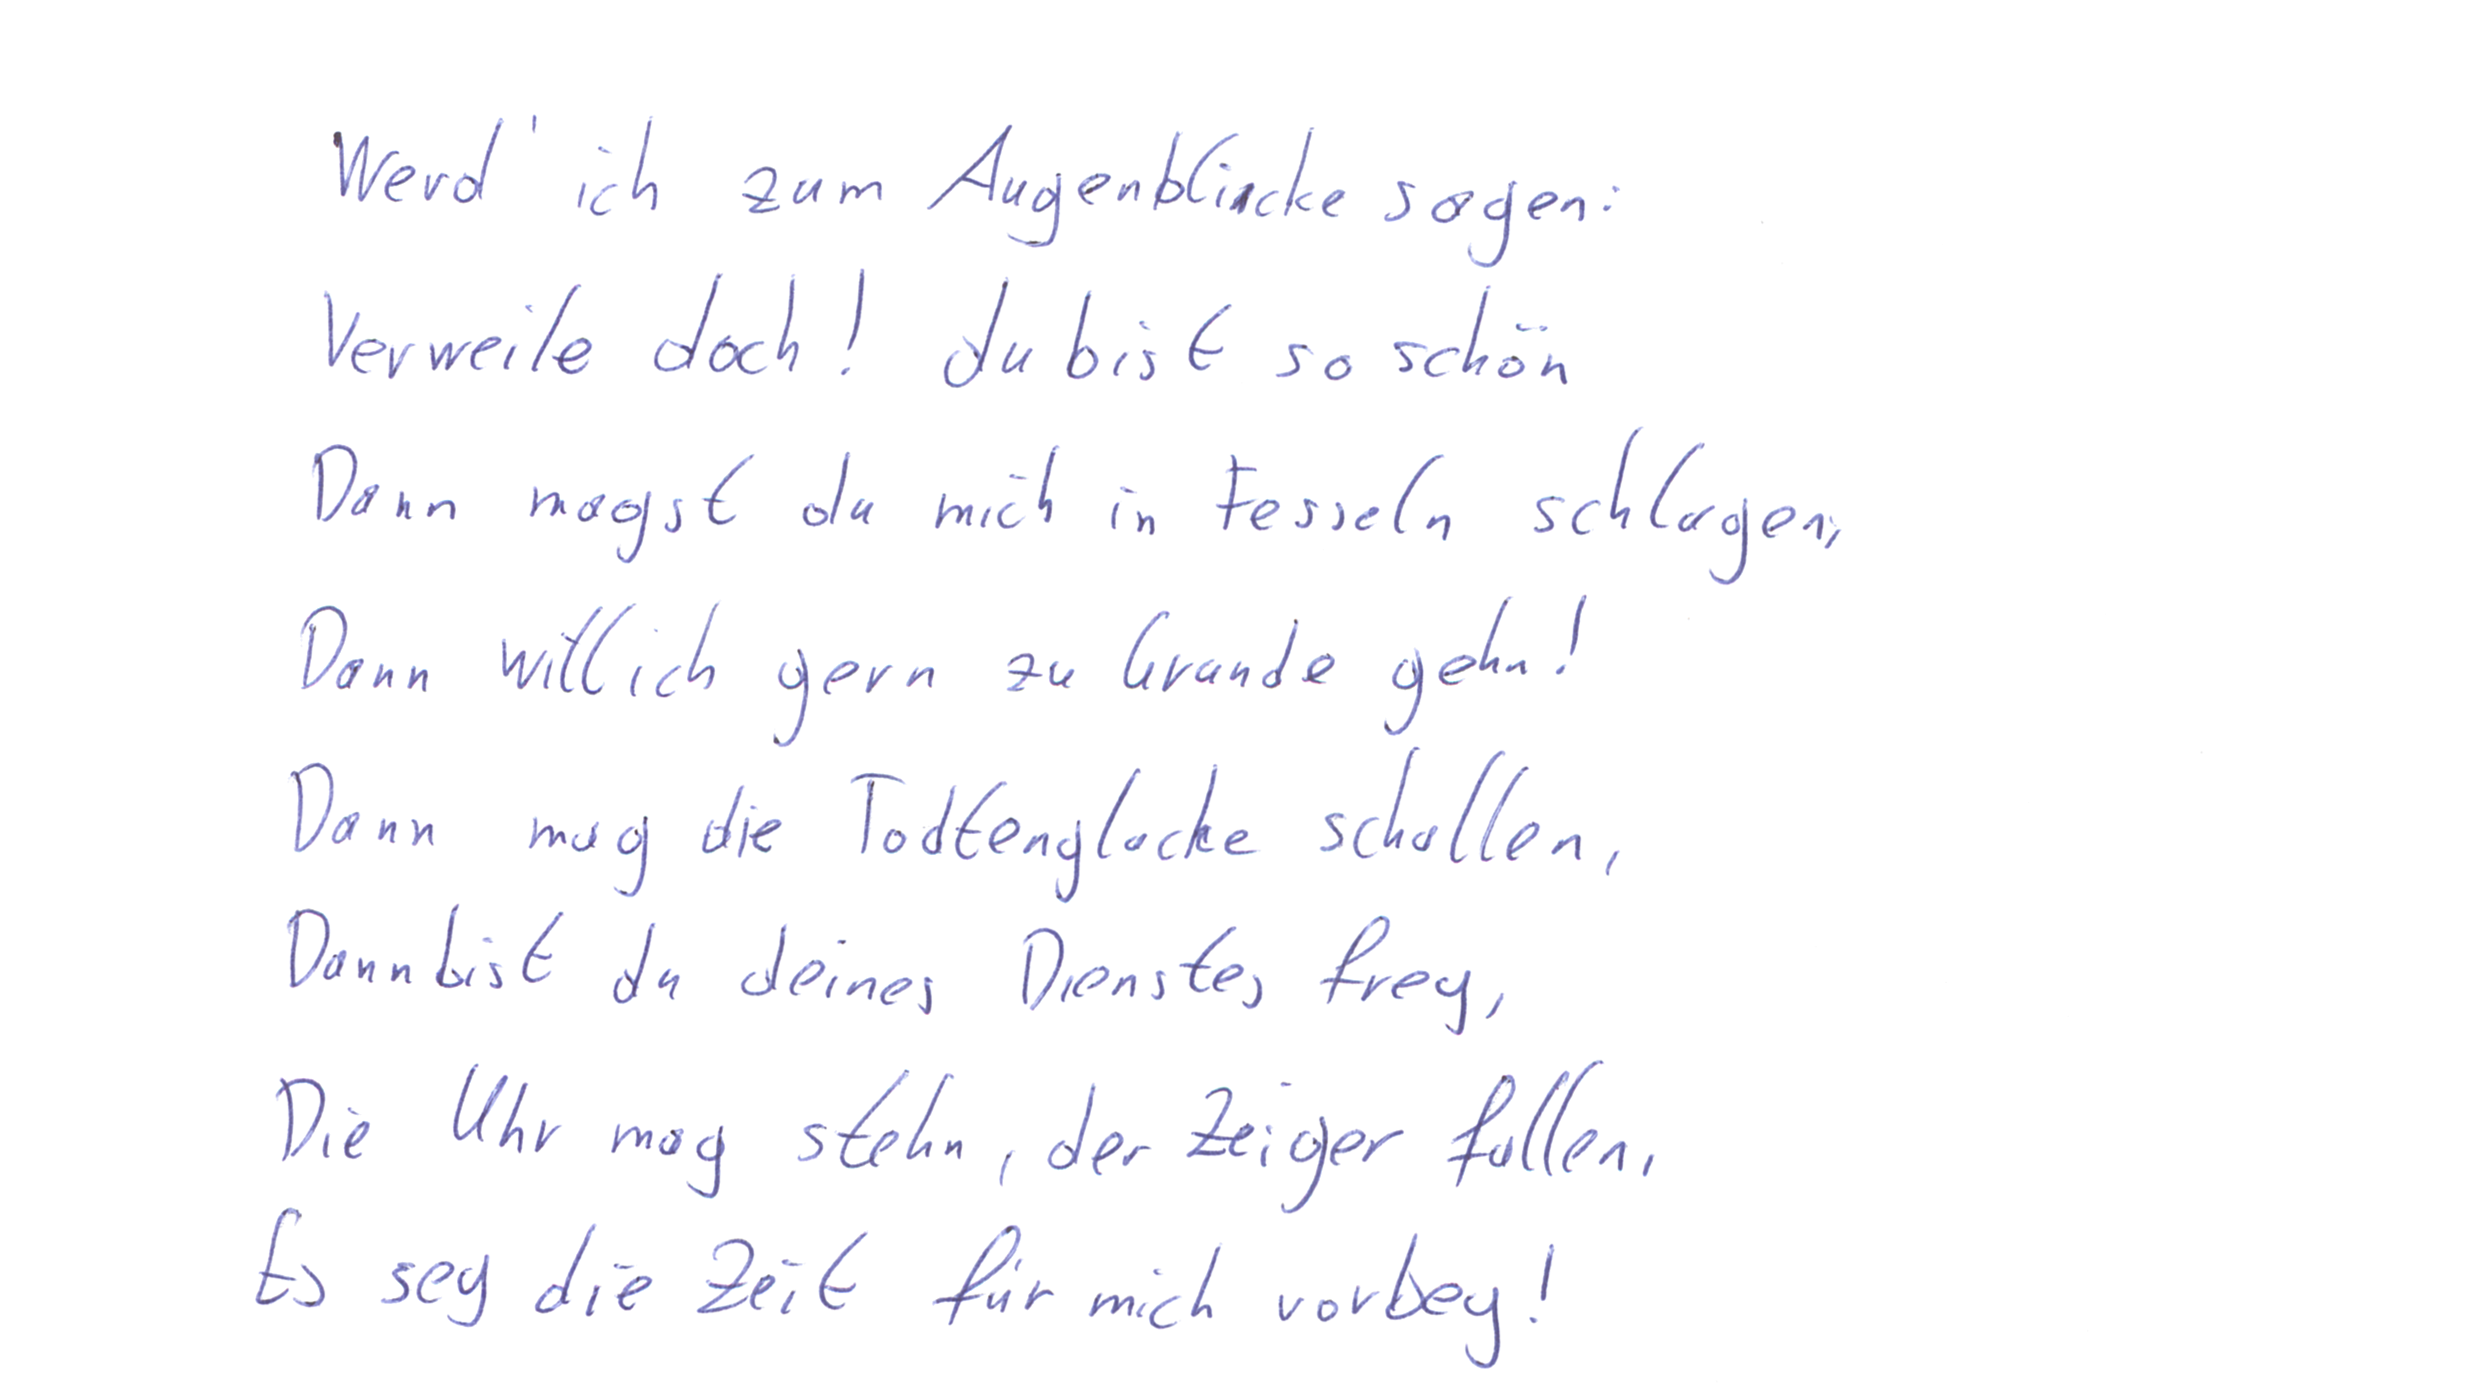 Werd' ich zum Augenblicke sagen:
Verweile doch! du bist so schön
Dann magst du mich in Fesseln schlagen,
Dann will ich gern zu Grunde gehn!
Dann mag die Todtenglocke schallen,
Dann bist du deines Dienstes frey,
Die Uhr mag stehn, der Zeiger fallen,
Es sey die Zeit für mich vorbey!